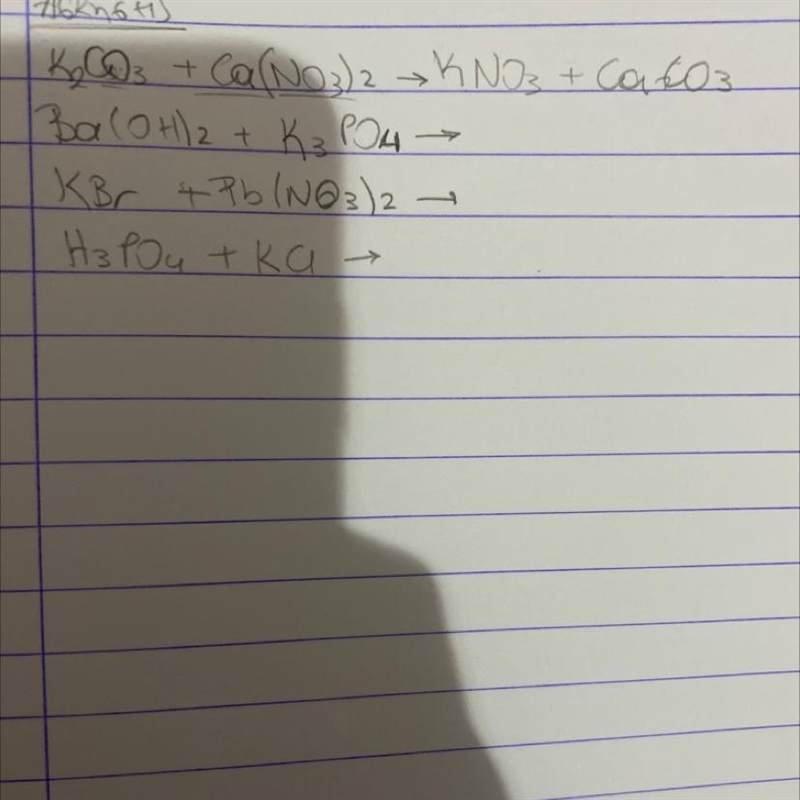 K₂CO₃ + Ca(NO₃)₂ → KNO₃ + CaCO₃
Ba(OH)₂ + K₃PO₄ →
KBr + Pb(NO₃)₂ →
H₃PO₄ + KCl →